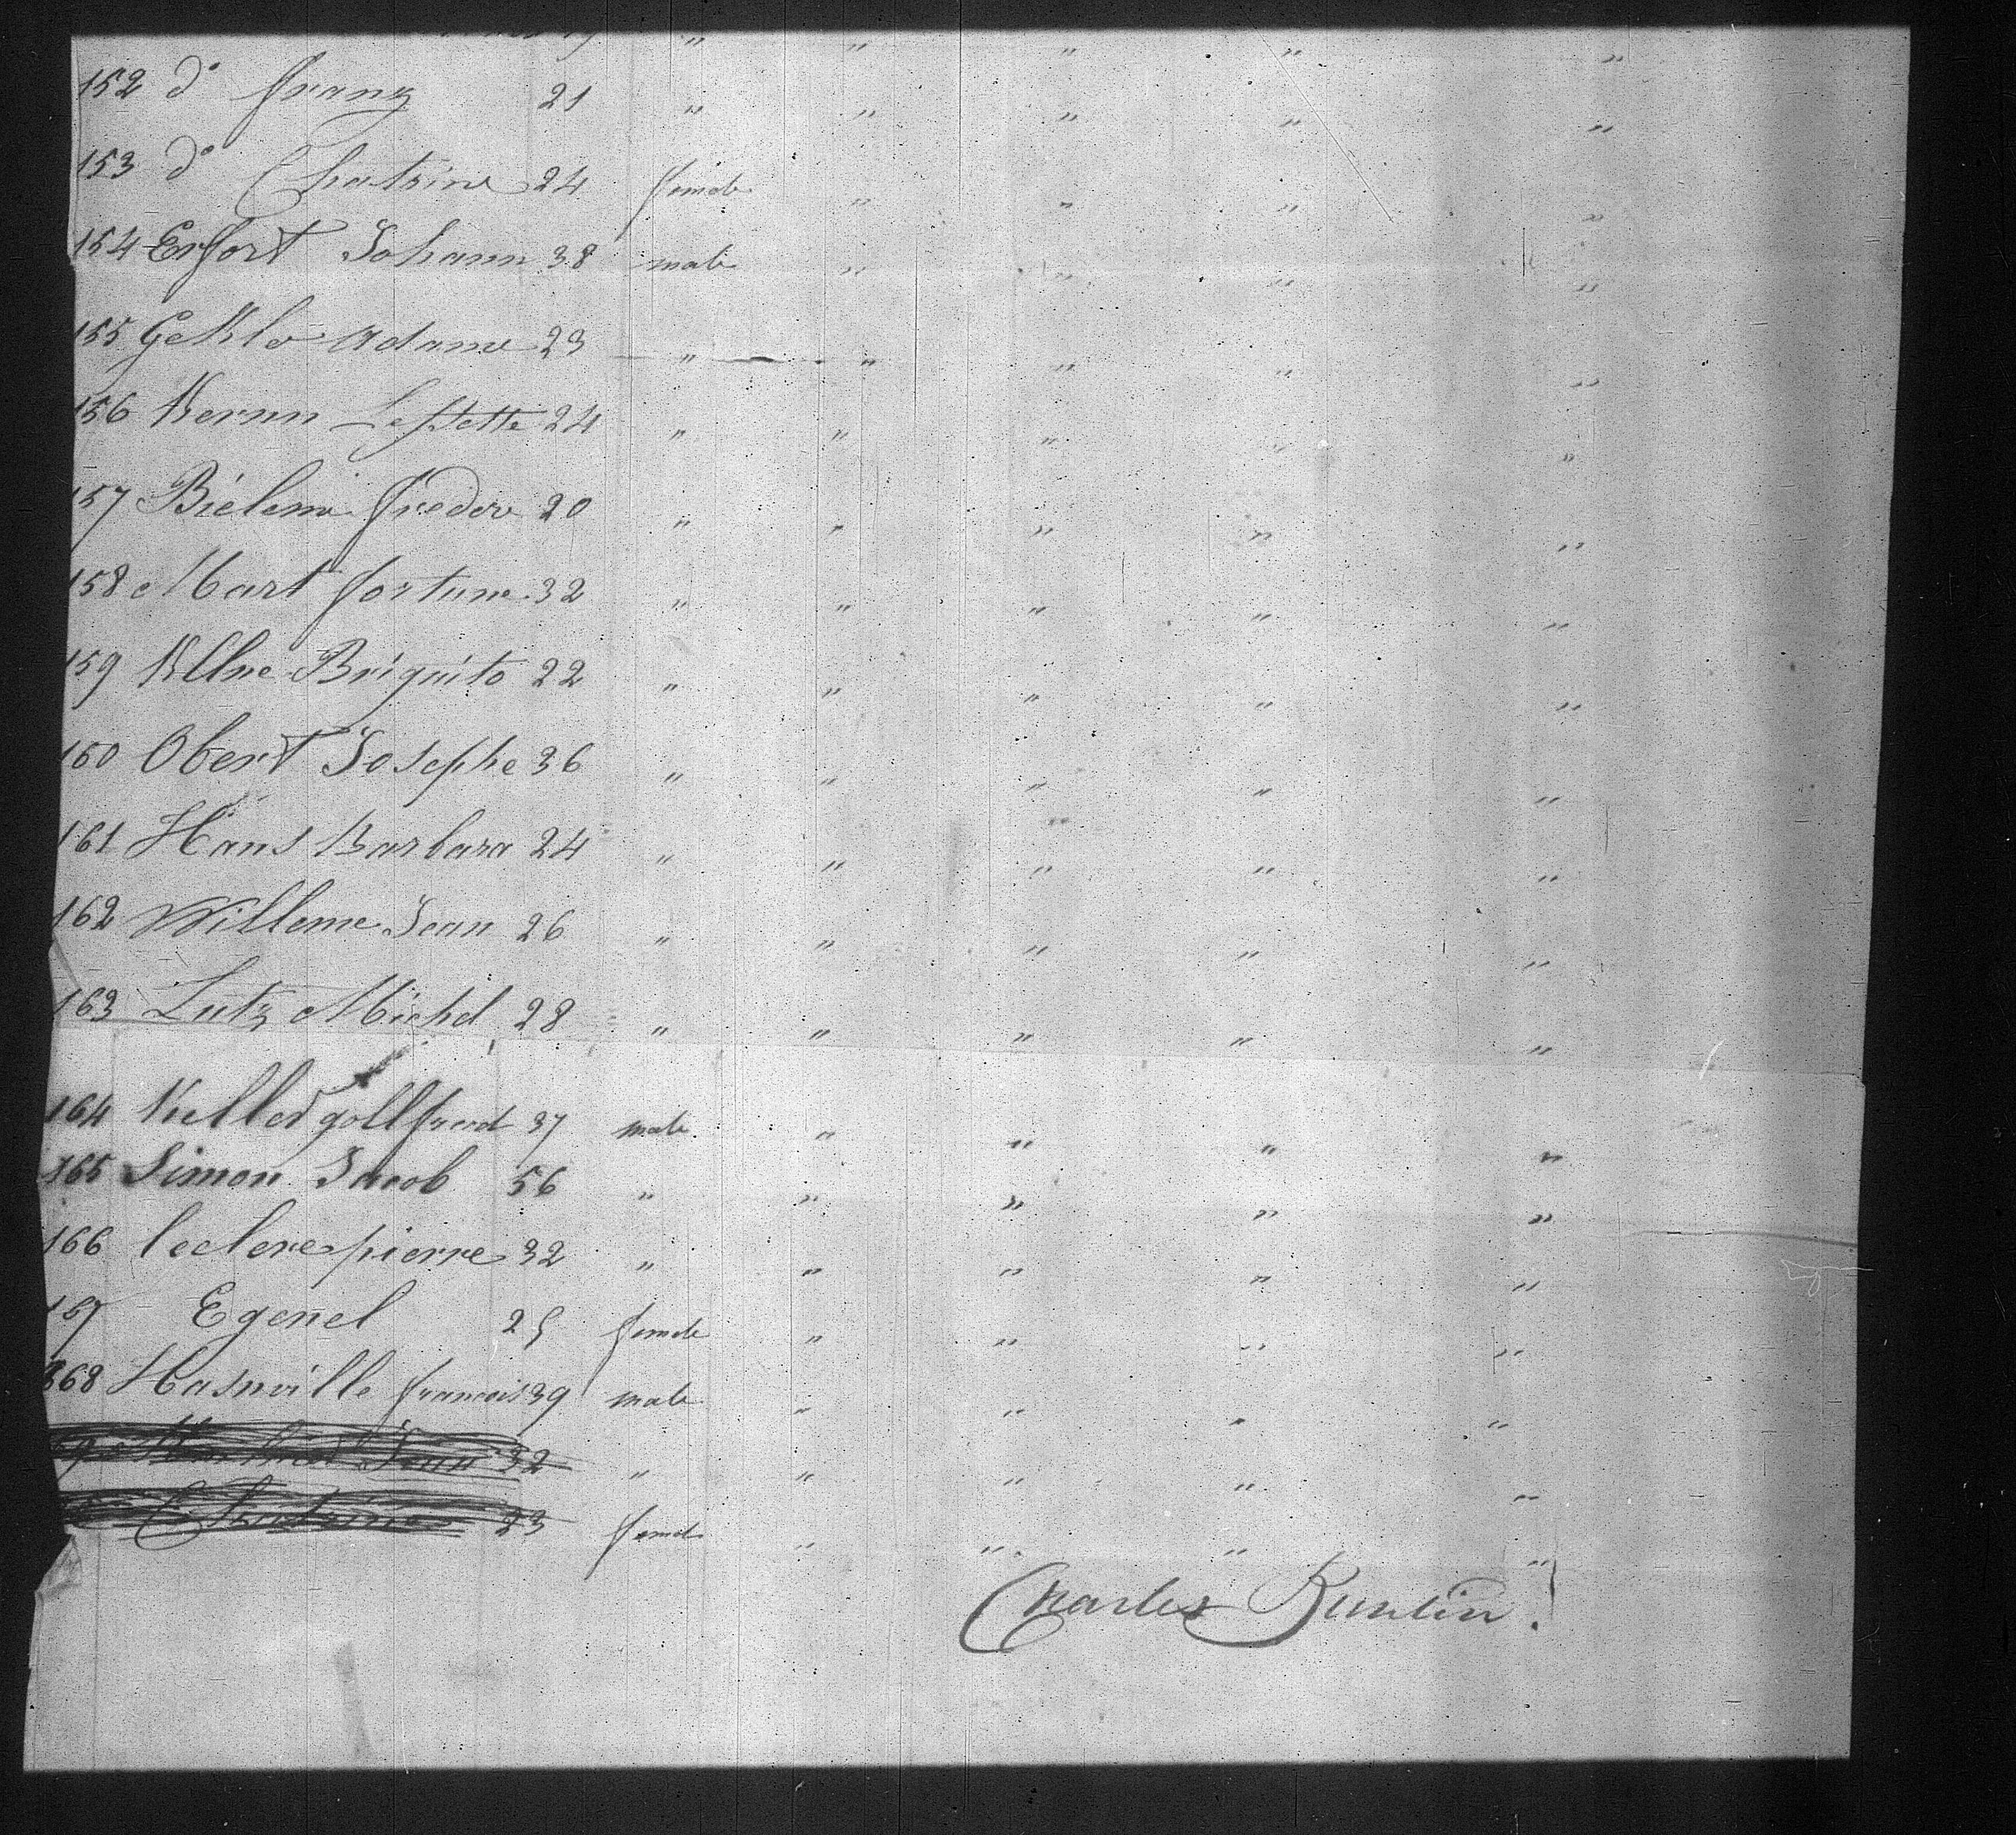 " " " " "
152 do franz 21 " " " " "
153 do Chatrine 24 female " " " "
154 Erfort Johann 38 male " " " "
155 Geklo Adame 23 " " " " "
156 Kernn 24 " " " " "
157 Bielem freder 20 " " " " "
158 Mart fortune 32 " " " " "
159 Briguito 22 " " " " "
160 Obert Josephe 36 " " " " "
161 Hans Barbara 24 " " " " "
162 Willeme Jean 26 " " " " "
163 Lutz Michel 28 " " " " "
164 Keller gollfried 37 male " " " "
165 Simon Jacob 56 " " " " "
166 leclere pierre 32 " " " " "
167 Egenel 25 female " " " "
168 Hasnville francois 39 male " " " "
Jean 32 " " " " "
Chatrine 23 femal " " " "
Charles